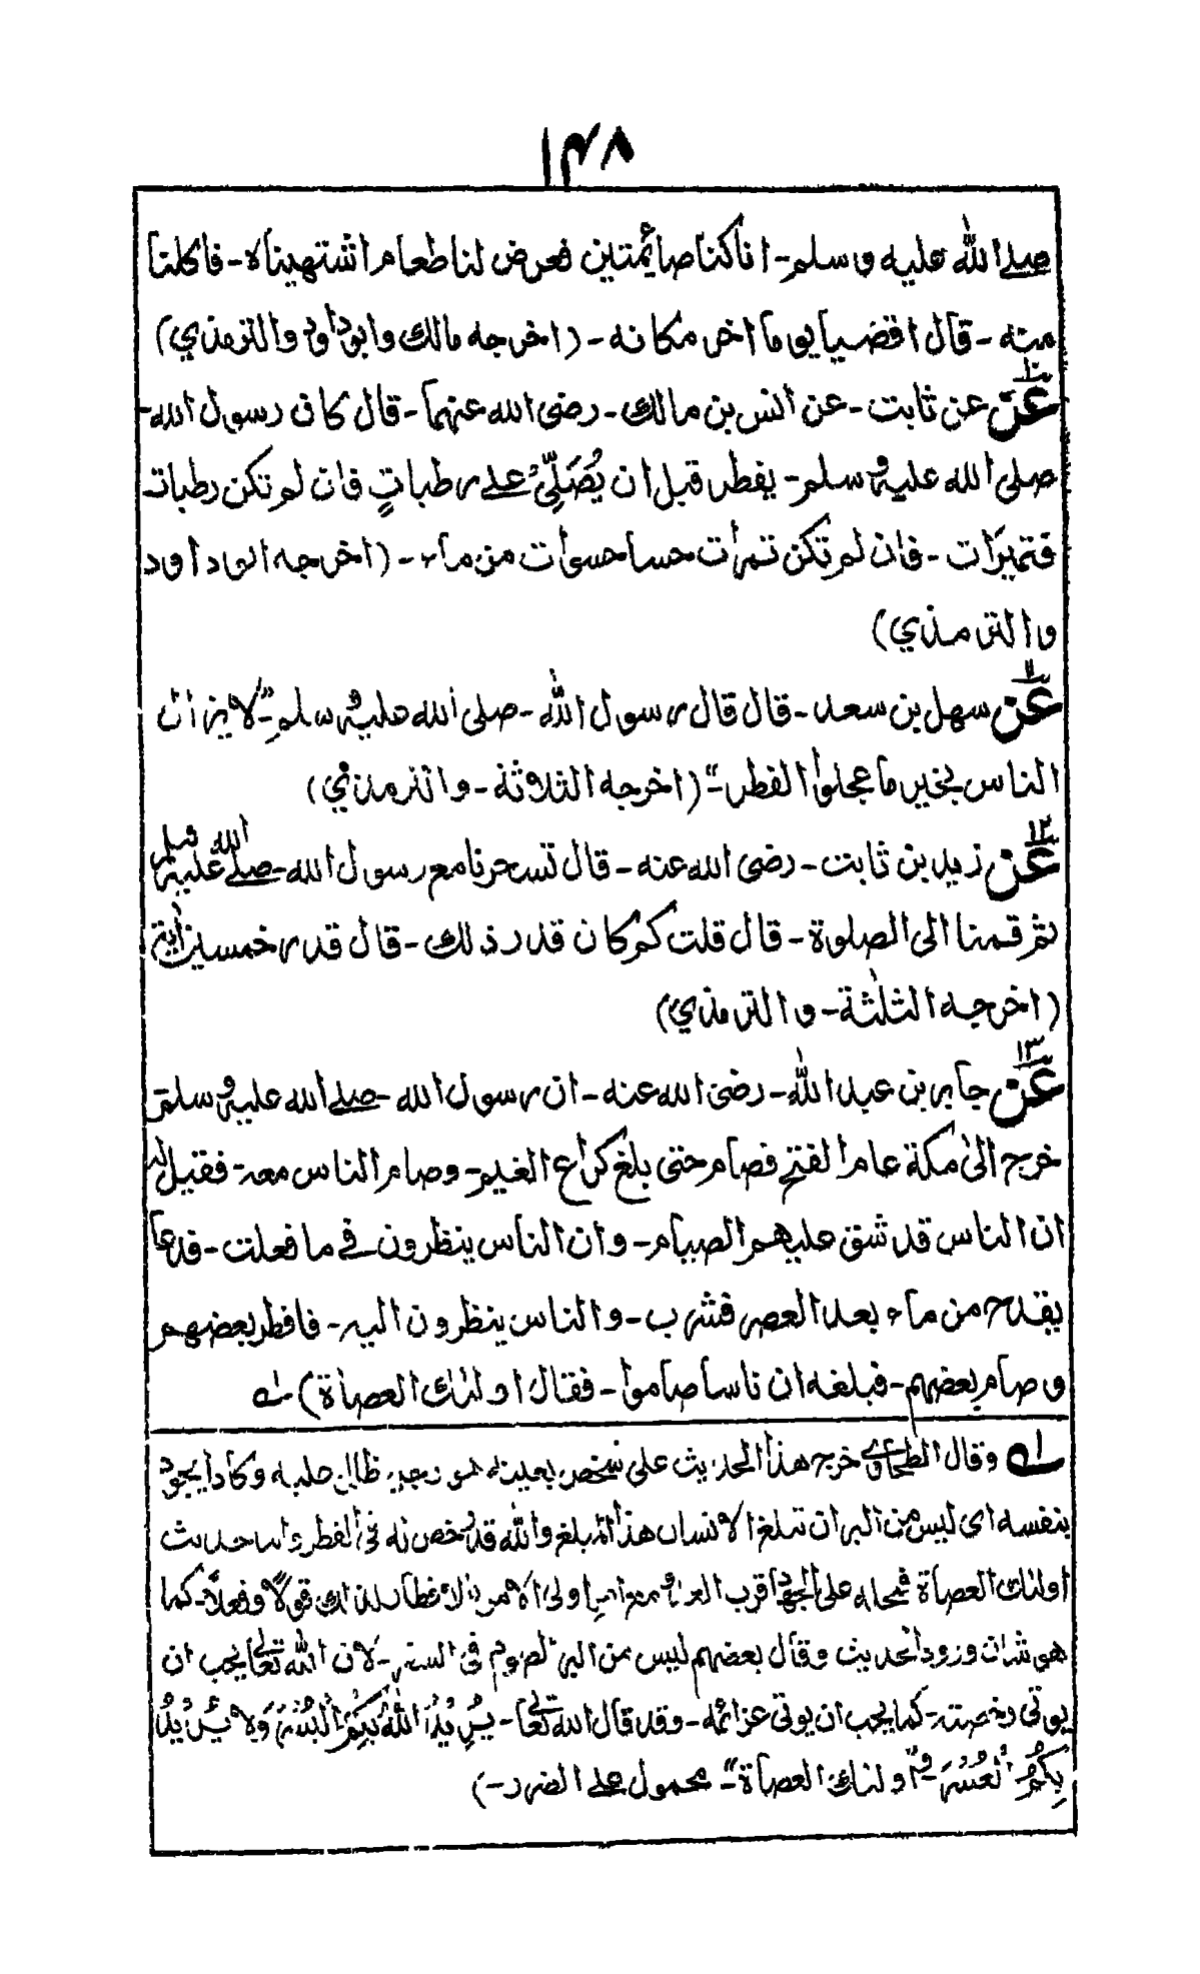 ۱۴۸
صلے الله عليه وسلم - اناكنا صائمتين فعرض لنا طعام اشتهيناه - فاكلنا
منه - قال اقضيا يوما اخر مكانه - (اخرجه مالك وابوداود والترمذي)
۱۰
عن عن ثابت - عن انس بن مالك - رضى الله عنهما - قال كان رسول الله -
صلى الله عليه وسلم - يفطر قبل ان يُصَلِّيَ علے رطباتٍ فان لم تكن رطبات
فتميرات - فان لم تكن تمرات حسا حسوات من ماء - (اخرجه ابوداود
والترمذي)
۱۱
عن سهل بن سعد - قال قال رسول الله - صلى الله عليه وسلم - ”لا يزال
الناس بخير ما عجلوا الفطر -“ (اخرجه الثلاثة - والترمذي)
۱۲
عن زيد بن ثابت - رضى الله عنه - قال تسحرنا مع رسول الله - صلے الله عليه وسلم
ثم قمنا الى الصلوة - قال قلت كم كان قدر ذلك - قال قدر خمسين اية
(اخرجه الثلثة - والترمذي)
۱۳
عن جابر بن عبد الله - رضى الله عنه - ان رسول الله - صلے الله عليه وسلم
خرج الى مكة عام الفتح فصام حتى بلغ كراع الغيم - وصام الناس معه - فقيل له
ان الناس قد شق عليهم الصيام - وان الناس ينظرون في ما فعلت - فدعا
بقدح من ماء بعد العصر فشرب - والناس ينظرون اليه - فافطر بعضهم
وصام بعضهم - فبلغه ان ناسا صاموا - فقال اولئك العصاة) له
له وقال الطحاوے خرج هذا الحديث على شخص بعينه ظلل عليه وكاد ايجود
بنفسه اى ليس من البر ان تبلغ الانسان هذا المبلغ والله قد رخص له فى الفطر حديث
اولئك العصاة فمحله على الجهد اقرب اولى الامر بالافطار لذلك قولا وفعلا - كما
هو شان ورود الحديث وقال بعضهم ليس من البر الصوم فى السفر - لان الله تعالى يحب ان
يوتى رخصته - كما يحب ان يوتى عزائمه - وقد قال الله تعالى - يُرِيْدُ اللهُ بِكُمُ الْيُسْرَ وَلَا يُرِيْدُ
بِكُمُ الْعُسْرَ - و”اولئك العصاة -“ محمول علے الضرر -)